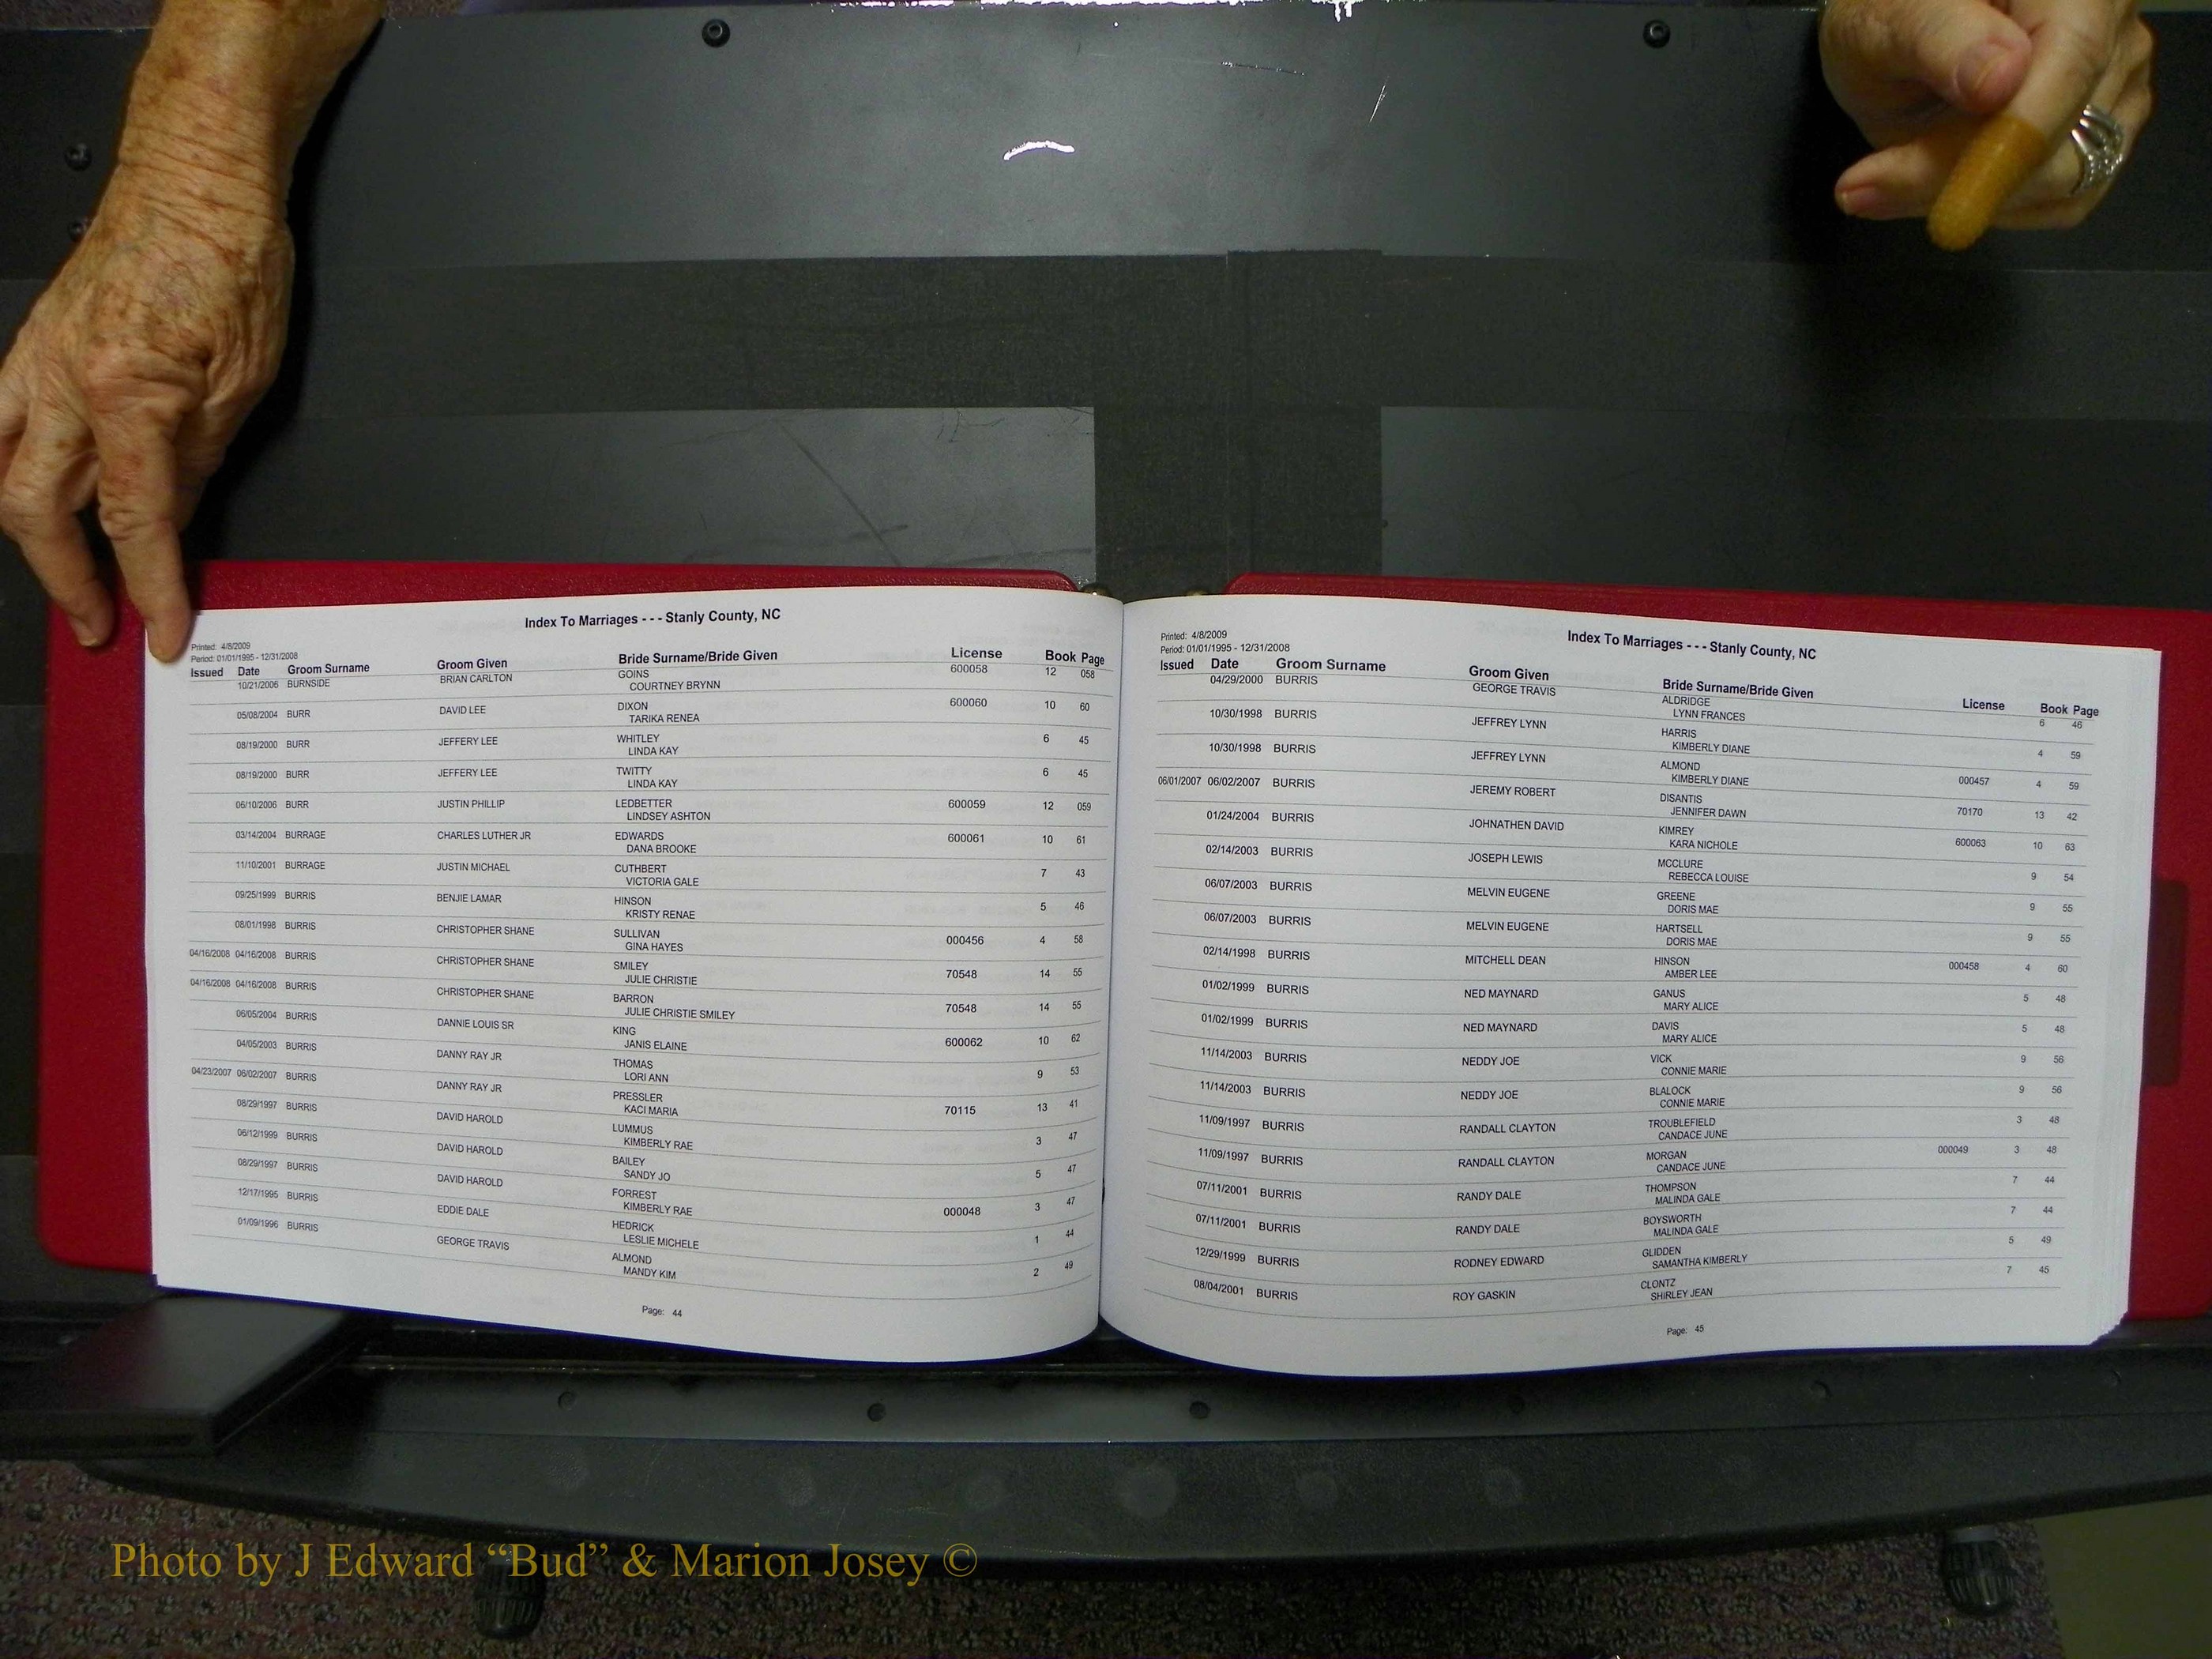 Index To Marriages - - - Stanly County, NC
Printed: 4/8/2009
Period: 01/01/1995 - 12/31/2008
Issued Date Groom Surname Groom Given Bride Surname/Bride Given License Book Page
10/21/2006 BURNSIDE BRIAN CARLTON GOINS 600058 12 058
COURTNEY BRYNN
05/08/2004 BURR DAVID LEE DIXON 600060 10 60
TARIKA RENEA
08/19/2000 BURR JEFFERY LEE WHITLEY 6 45
LINDA KAY
08/19/2000 BURR JEFFERY LEE TWITTY 6 45
LINDA KAY
06/10/2006 BURR JUSTIN PHILLIP LEDBETTER 600059 12 059
LINDSEY ASHTON
03/14/2004 BURRAGE CHARLES LUTHER JR EDWARDS 600061 10 61
DANA BROOKE
11/10/2001 BURRAGE JUSTIN MICHAEL CUTHBERT 7 43
VICTORIA GALE
09/25/1999 BURRIS BENJIE LAMAR HINSON 5 46
KRISTY RENAE
08/01/1998 BURRIS CHRISTOPHER SHANE SULLIVAN 000456 4 58
GINA HAYES
04/16/2008 04/16/2008 BURRIS CHRISTOPHER SHANE SMILEY 70548 14 55
JULIE CHRISTIE
04/16/2008 04/16/2008 BURRIS CHRISTOPHER SHANE BARRON 70548 14 55
JULIE CHRISTIE SMILEY
06/05/2004 BURRIS DANNIE LOUIS SR KING 600062 10 62
JANIS ELAINE
04/05/2003 BURRIS DANNY RAY JR THOMAS 9 53
LORI ANN
04/23/2007 06/02/2007 BURRIS DANNY RAY JR PRESSLER 70115 13 41
KACI MARIA
08/29/1997 BURRIS DAVID HAROLD LUMMUS 3 47
KIMBERLY RAE
06/12/1999 BURRIS DAVID HAROLD BAILEY 5 47
SANDY JO
08/29/1997 BURRIS DAVID HAROLD FORREST 000048 3 47
KIMBERLY RAE
12/17/1995 BURRIS EDDIE DALE HEDRICK 1 44
LESLIE MICHELE
01/09/1996 BURRIS GEORGE TRAVIS ALMOND 2 49
MANDY KIM
Page: 44
Index To Marriages - - - Stanly County, NC
Printed: 4/8/2009
Period: 01/01/1995 - 12/31/2008
Issued Date Groom Surname Groom Given Bride Surname/Bride Given License Book Page
04/29/2000 BURRIS GEORGE TRAVIS ALDRIDGE 6 46
LYNN FRANCES
10/30/1998 BURRIS JEFFREY LYNN HARRIS 4 59
KIMBERLY DIANE
10/30/1998 BURRIS JEFFREY LYNN ALMOND 000457 4 59
KIMBERLY DIANE
06/01/2007 06/02/2007 BURRIS JEREMY ROBERT DISANTIS 70170 13 42
JENNIFER DAWN
01/24/2004 BURRIS JOHNATHEN DAVID KIMREY 600063 10 63
KARA NICHOLE
02/14/2003 BURRIS JOSEPH LEWIS MCCLURE 9 54
REBECCA LOUISE
06/07/2003 BURRIS MELVIN EUGENE GREENE 9 55
DORIS MAE
06/07/2003 BURRIS MELVIN EUGENE HARTSELL 9 55
DORIS MAE
02/14/1998 BURRIS MITCHELL DEAN HINSON 000458 4 60
AMBER LEE
01/02/1999 BURRIS NED MAYNARD GANUS 5 48
MARY ALICE
01/02/1999 BURRIS NED MAYNARD DAVIS 5 48
MARY ALICE
11/14/2003 BURRIS NEDDY JOE VICK 9 56
CONNIE MARIE
11/14/2003 BURRIS NEDDY JOE BLALOCK 9 56
CONNIE MARIE
11/09/1997 BURRIS RANDALL CLAYTON TROUBLEFIELD 3 48
CANDACE JUNE
11/09/1997 BURRIS RANDALL CLAYTON MORGAN 000049 3 48
CANDACE JUNE
07/11/2001 BURRIS RANDY DALE THOMPSON 7 44
MALINDA GALE
07/11/2001 BURRIS RANDY DALE BOYSWORTH 7 44
MALINDA GALE
12/29/1999 BURRIS RODNEY EDWARD GLIDDEN 5 49
SAMANTHA KIMBERLY
08/04/2001 BURRIS ROY GASKIN CLONTZ 7 45
SHIRLEY JEAN
Page: 45
Photo by J Edward “Bud” & Marion Josey ©